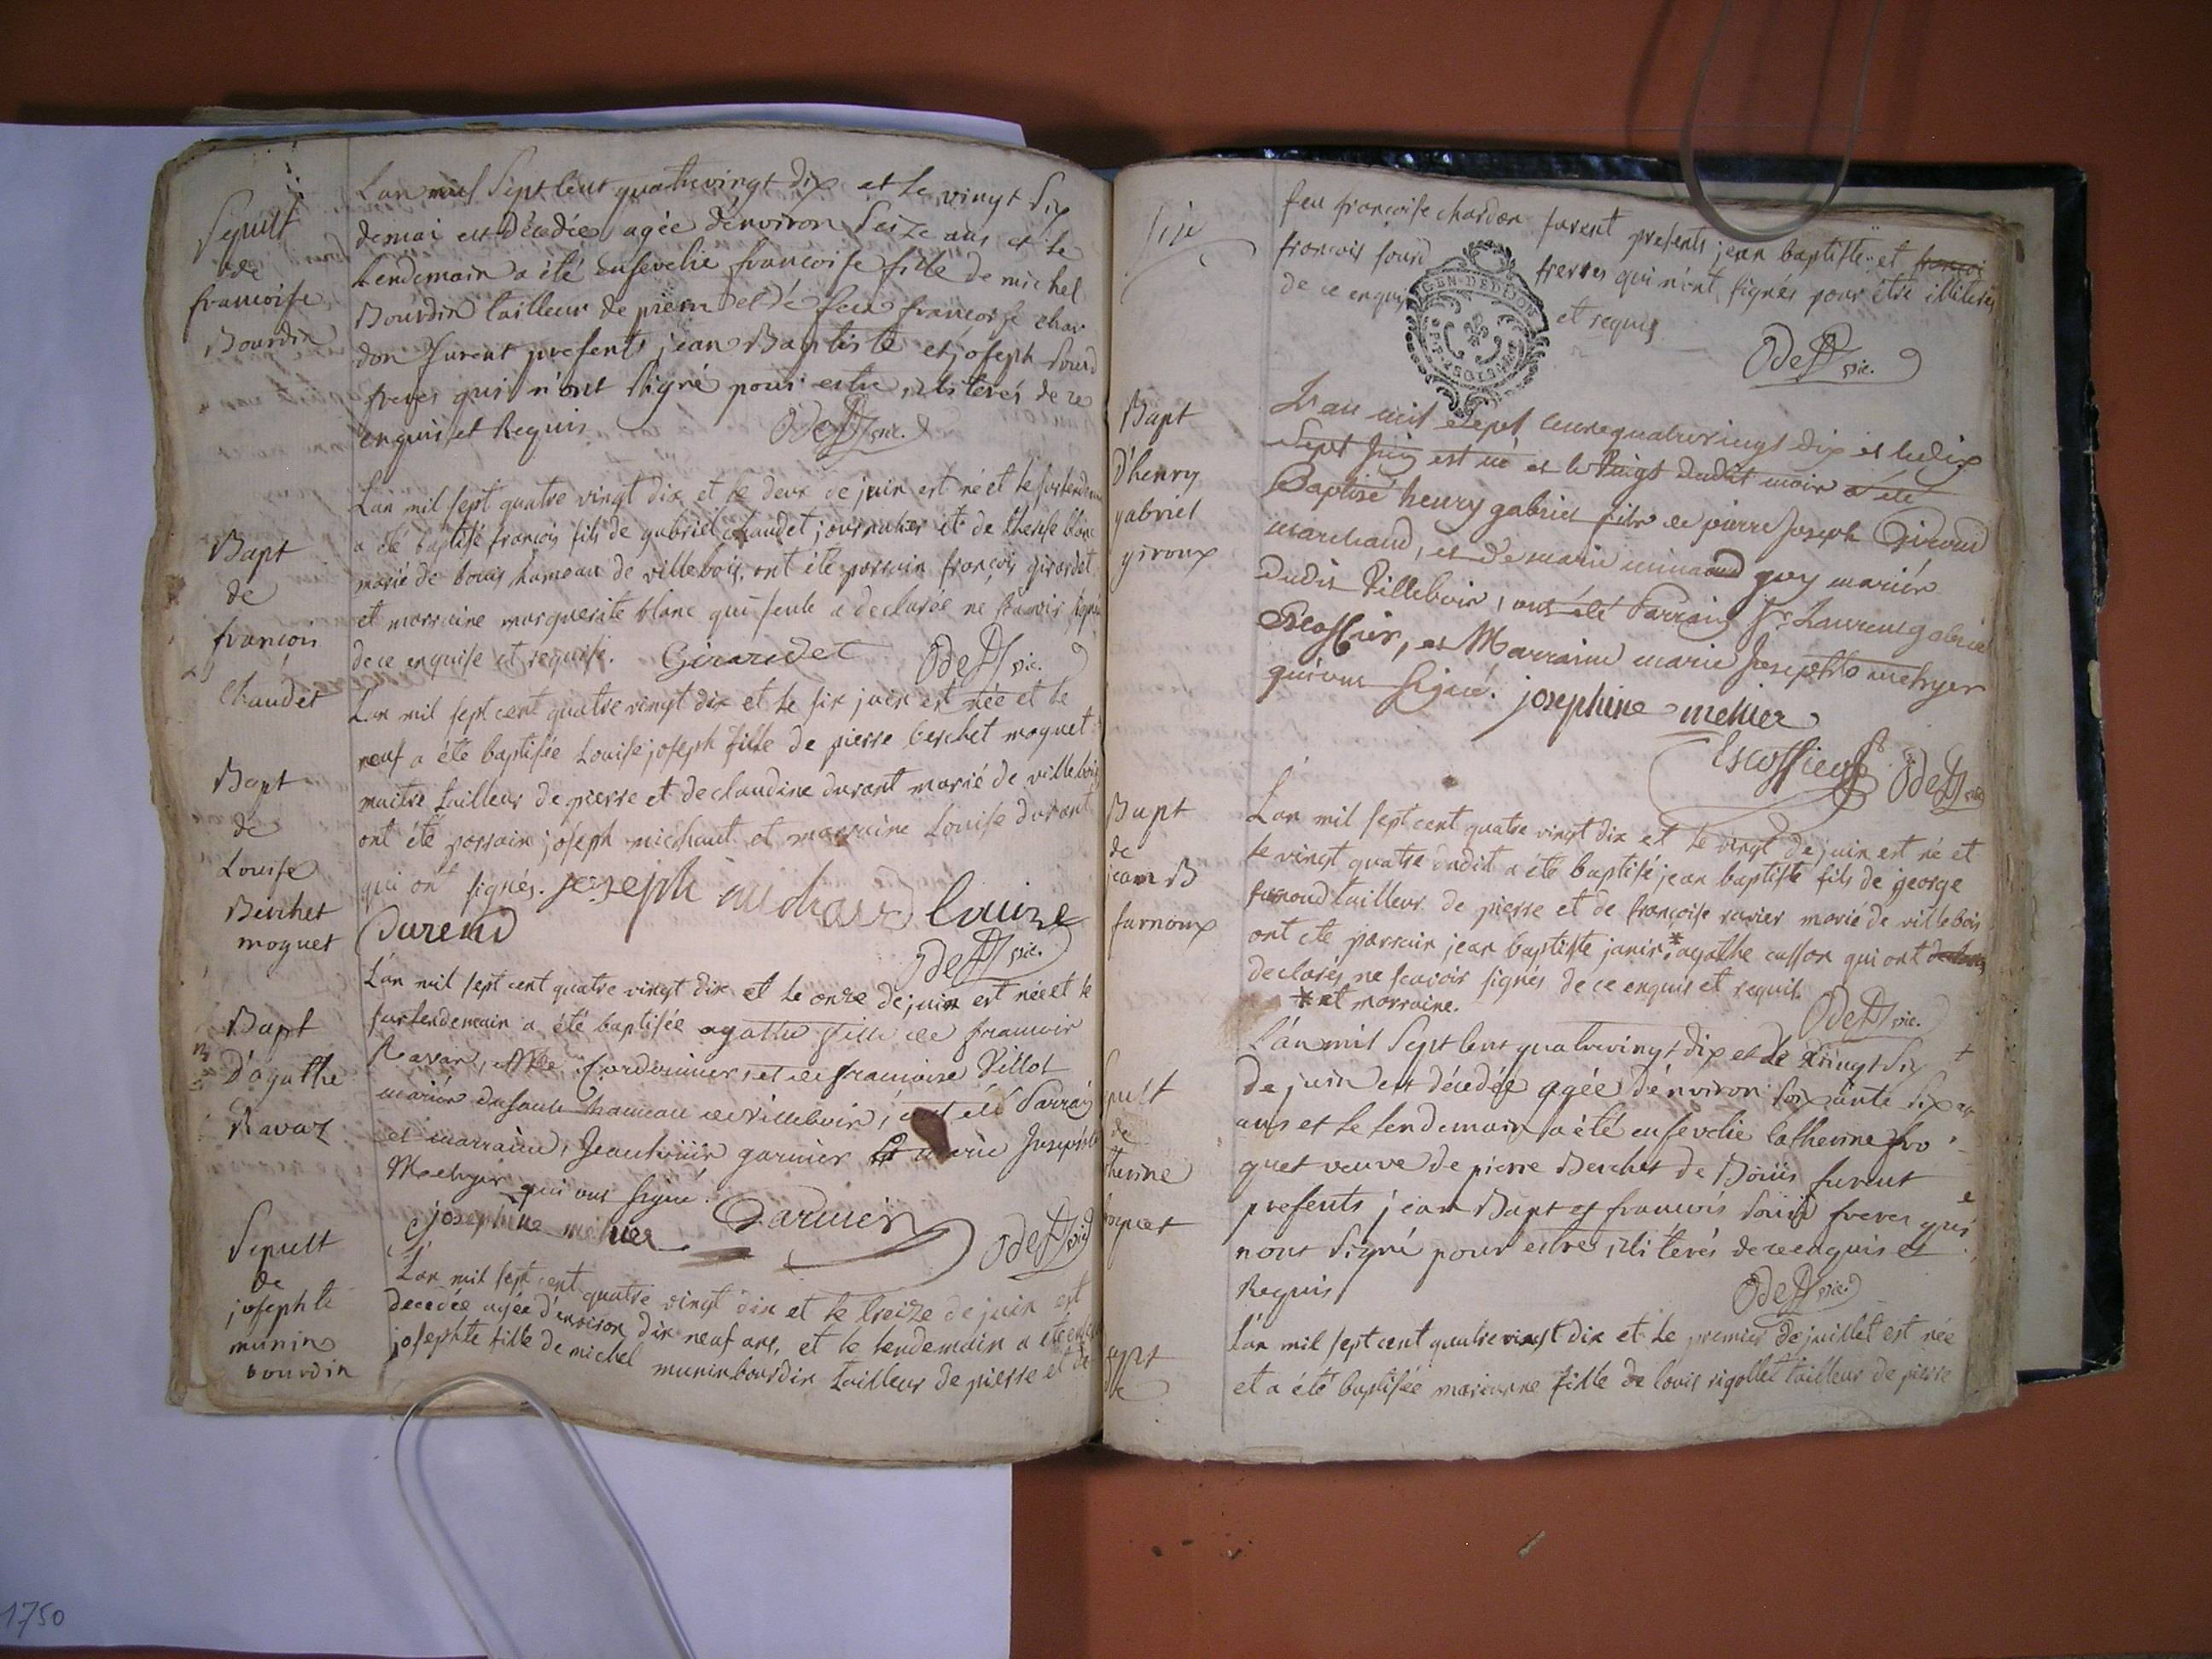 Sepult
de
francoise
Bourdin
Lan mil Sept Cent quatrevingt dix et le vingt Six
demai est décédée agée denviron Seize ans et le
lendemain a été ensevelie francoise fille de michel
Bourdin tailleur de pierre et de feue francoise char
don furent presents jean Baptiste et joseph Sourd
freres qui n'ont Signé pour estre illiterés de ce
enquis et Requis OdeD vic.
Bapt
de
francois
Chaudet
Lan mil sept quatre vingt dix et le deux de juin est né et le surlendemain
a été baptisé francois fils de gabriel chaudet journalier et de therese blanc
marié de bouis hameau de villebois, ont été parrain françois girardet
et marraine marguerite blanc qui seule a declarée ne scavoir signé
de ce enquise et requise. Girardet OdeD vic.
Bapt
de
Louise
Berchet
moquet
Lan mil sept cent quatre vingt dix et le six juin est née et le
neuf a été baptisée Louise joseph fille de pierre berchet moquet
maitre tailleur de pierre et de claudine durant marié de villebois
ont été parrain joseph michaut et marraine Louise durant
qui ont signés. joseph michaud louize
Durend OdeD vic.
Bapt
D'agathe
Ravaz
Lan mil sept cent quatre vingt dix et le onze de juin est née et le
surlendemain a été baptisée agathe fille de francois
Ravaz, Cordonnier, et de francoise Villot
mariés hameau de villebois, ont été Parrain
et marraine, Jean garnier et marie Josephte
Mehyer qui ont signé.
josephine mehier Garnier OdeD vic
Sepult
de
josephte
munin
bourdin
L'an mil sept cent quatre vingt dix et le treize de juin est
decedée agée d'environ dix neuf ans, et le lendemain a été
josephte fille de michel muninbourdin tailleur de pierre et de
feu françoise chardon furent presents jean baptiste et francoi
francois sourd freres qui n'ont signés pour être illiterés
de ce enquis et requis
OdeD vic.
GEN. DE DIJON
Bapt
D'henry
gabriel
giroux
L'an mil sept cent quatrevingt dix et le dix
Sept Juin est né et le Vingt dudit mois a été
Baptisé henry gabriel fils de pierre Joseph Giroud
marchand, et de marie guy mariés
dudit Villebois, ont été Parrain Sr Laurent gabriel
Escoffier, et Marraine marie Josephte mehyer
qui ont signé. josephine mehier
Escoffier OdeD vic
Bapt
de
jean B
furnoux
L'an mil sept cent quatre vingt dix et le vingt de juin est né et
le vingt quatre dudit a été baptisé jean baptiste fils de george
furnoud tailleur de pierre et de françoise ravier marié de villebois
ont ete parrain jean baptiste janin * agathe casson qui ont
declarés ne scavoir signés de ce enquis et requis.
* et marraine. OdeD vic.
pult
de
therine
oquet
L'an mil Sept Cent quatrevingt dix et le Vingt Six
de juin est décédée agée d'environ soixante Six
ans et le lendemain a été ensevelie Catherine fro
quet veuve de pierre Berchet de Boüis furent
presents jean Bapt et francois Sourd freres qui
nont Signé pour estre illiterés de ce enquis et
Requis OdeD vic.
apt
de
L'an mil sept cent quatrevingt dix et le premier de juillet est née
et a été baptisée marianne fille de louis rigollet tailleur de pierre
1750